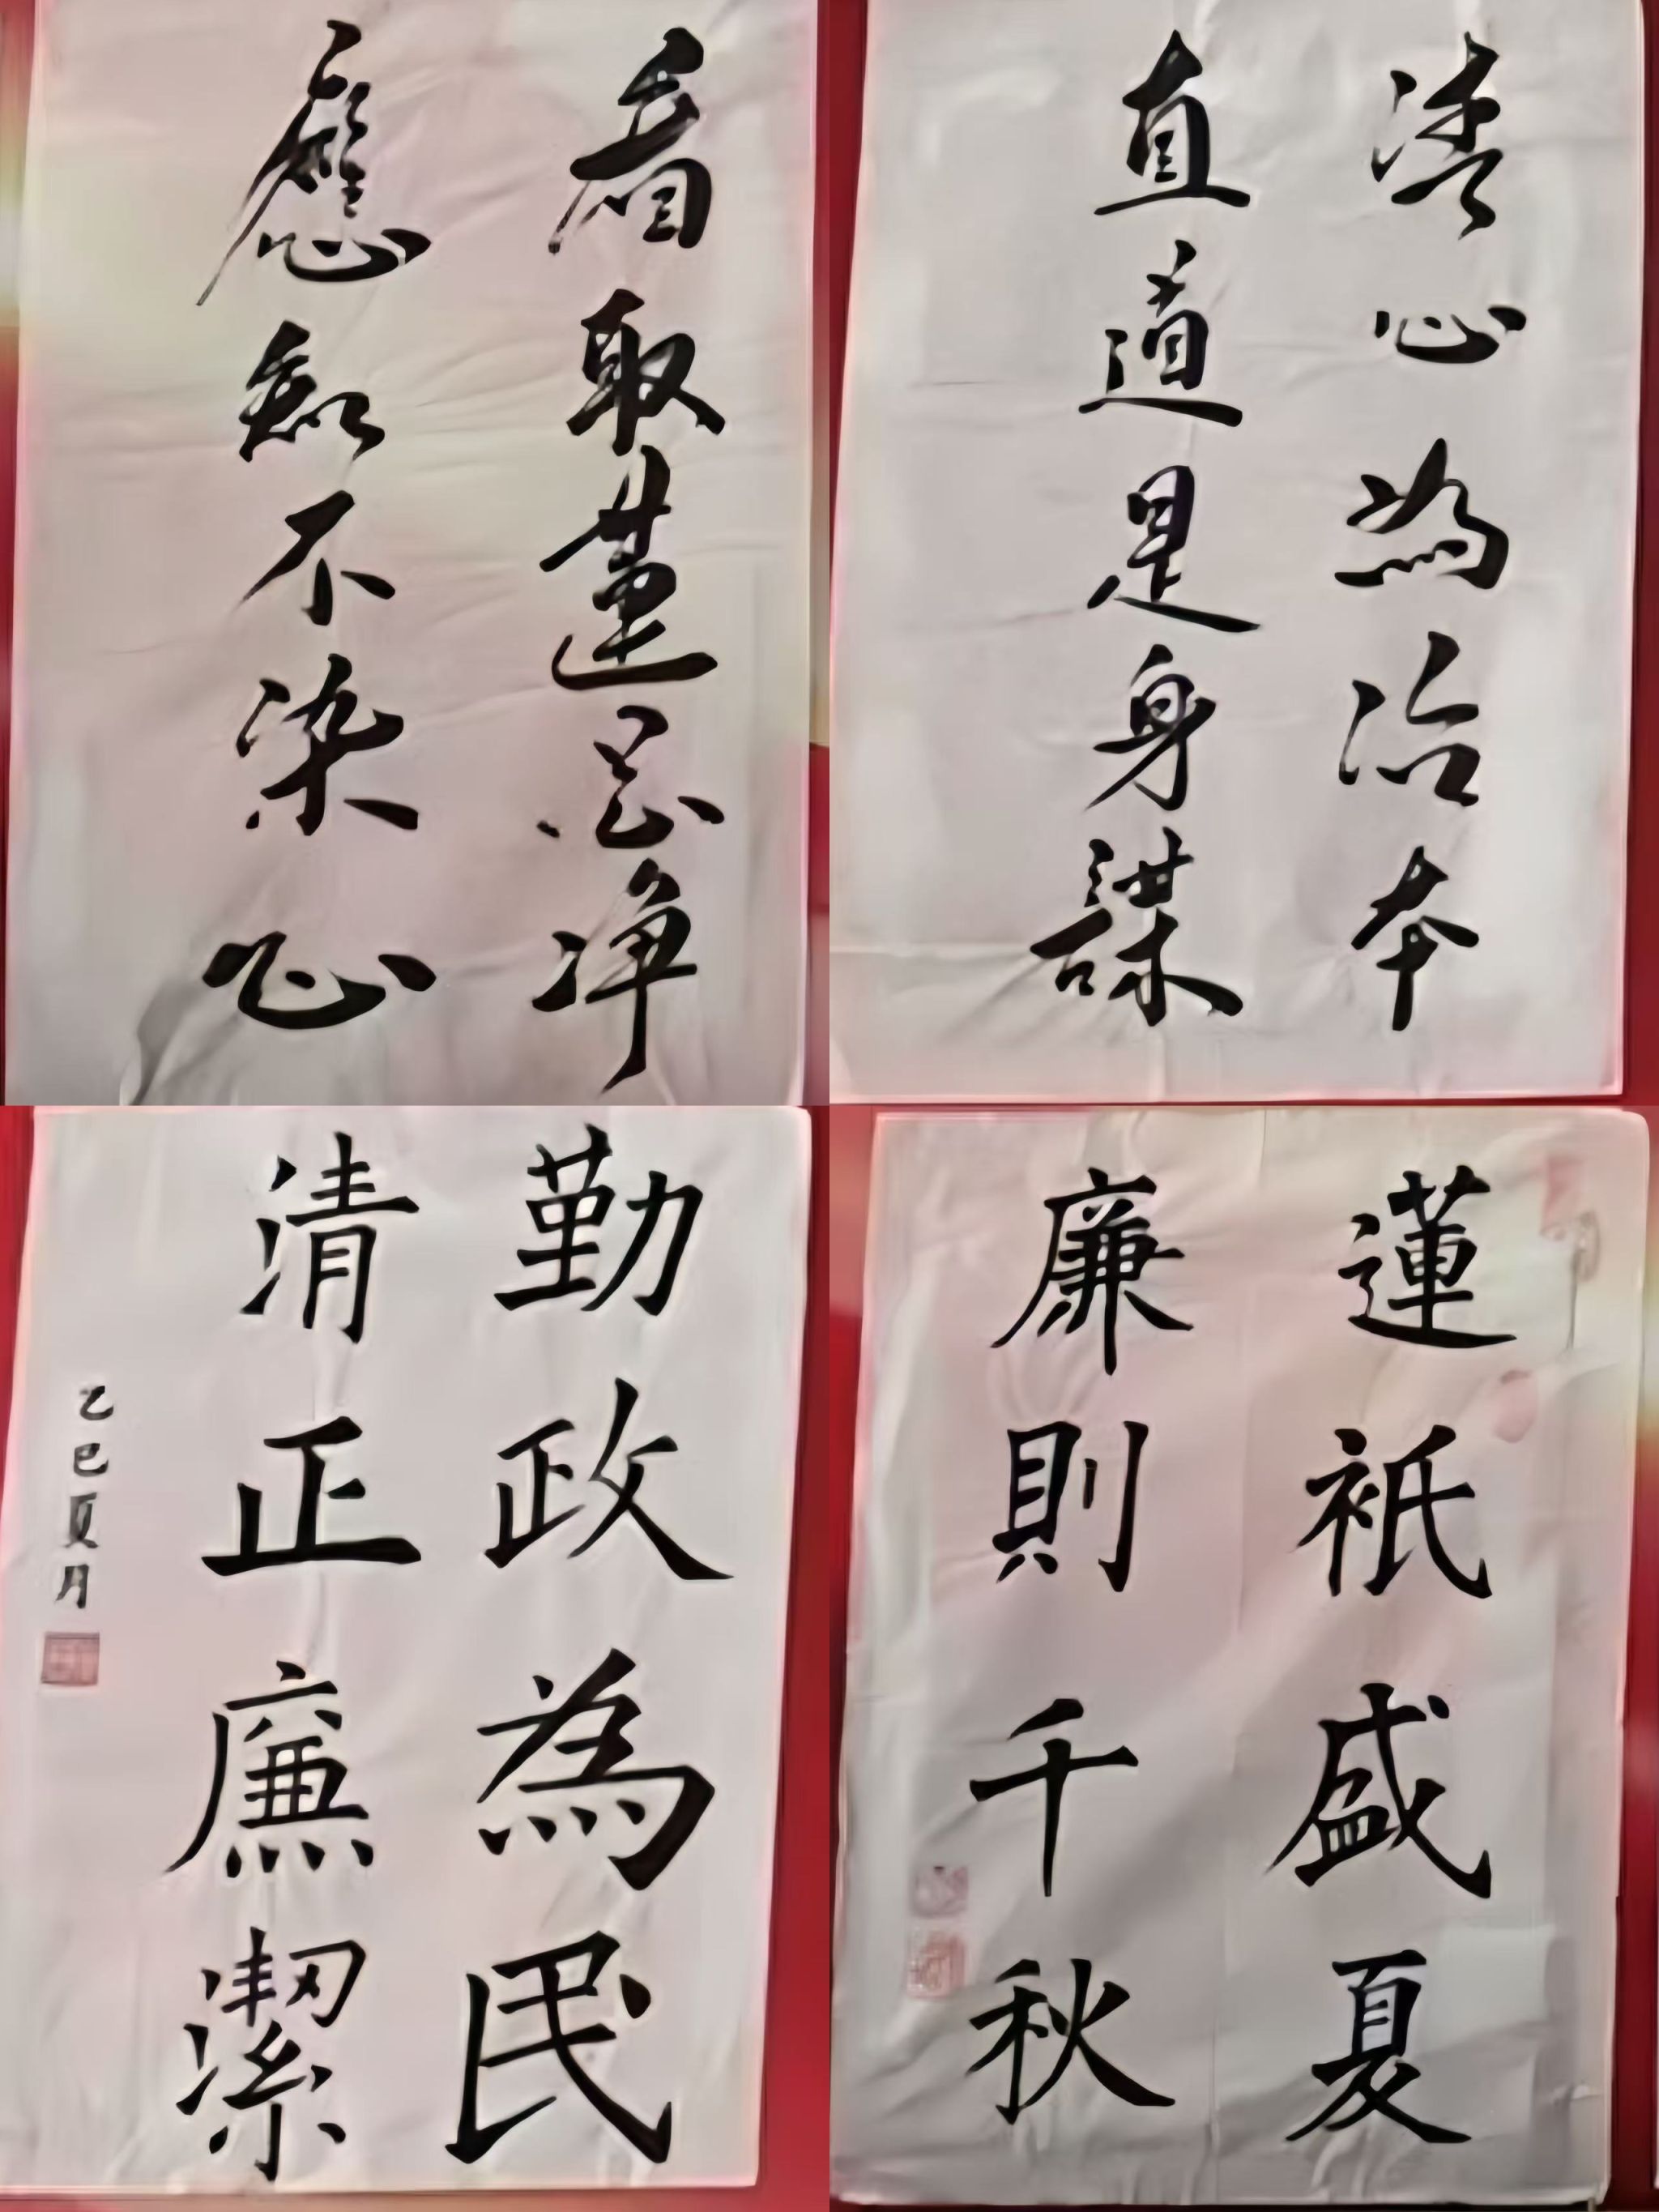 清心為治本
直道是身謀
看取蓮花净
應知不染心
蓮衹盛夏
廉則千秋
勤政為民
清正廉潔
乙巳夏月